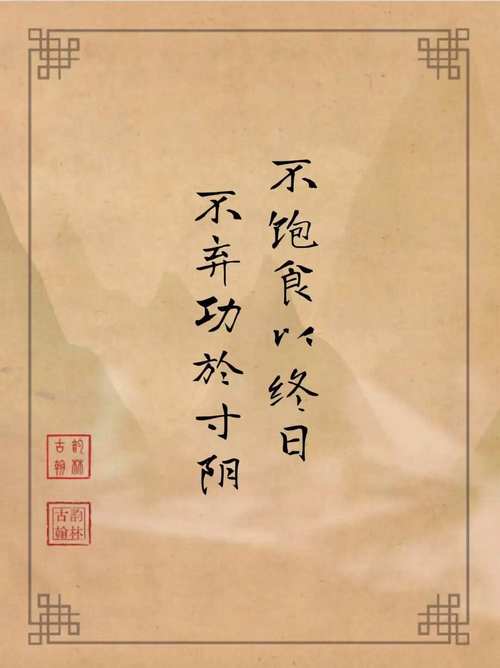 不饱食以终日
不弃功於寸阴
韵林
古翰
韵林
古翰